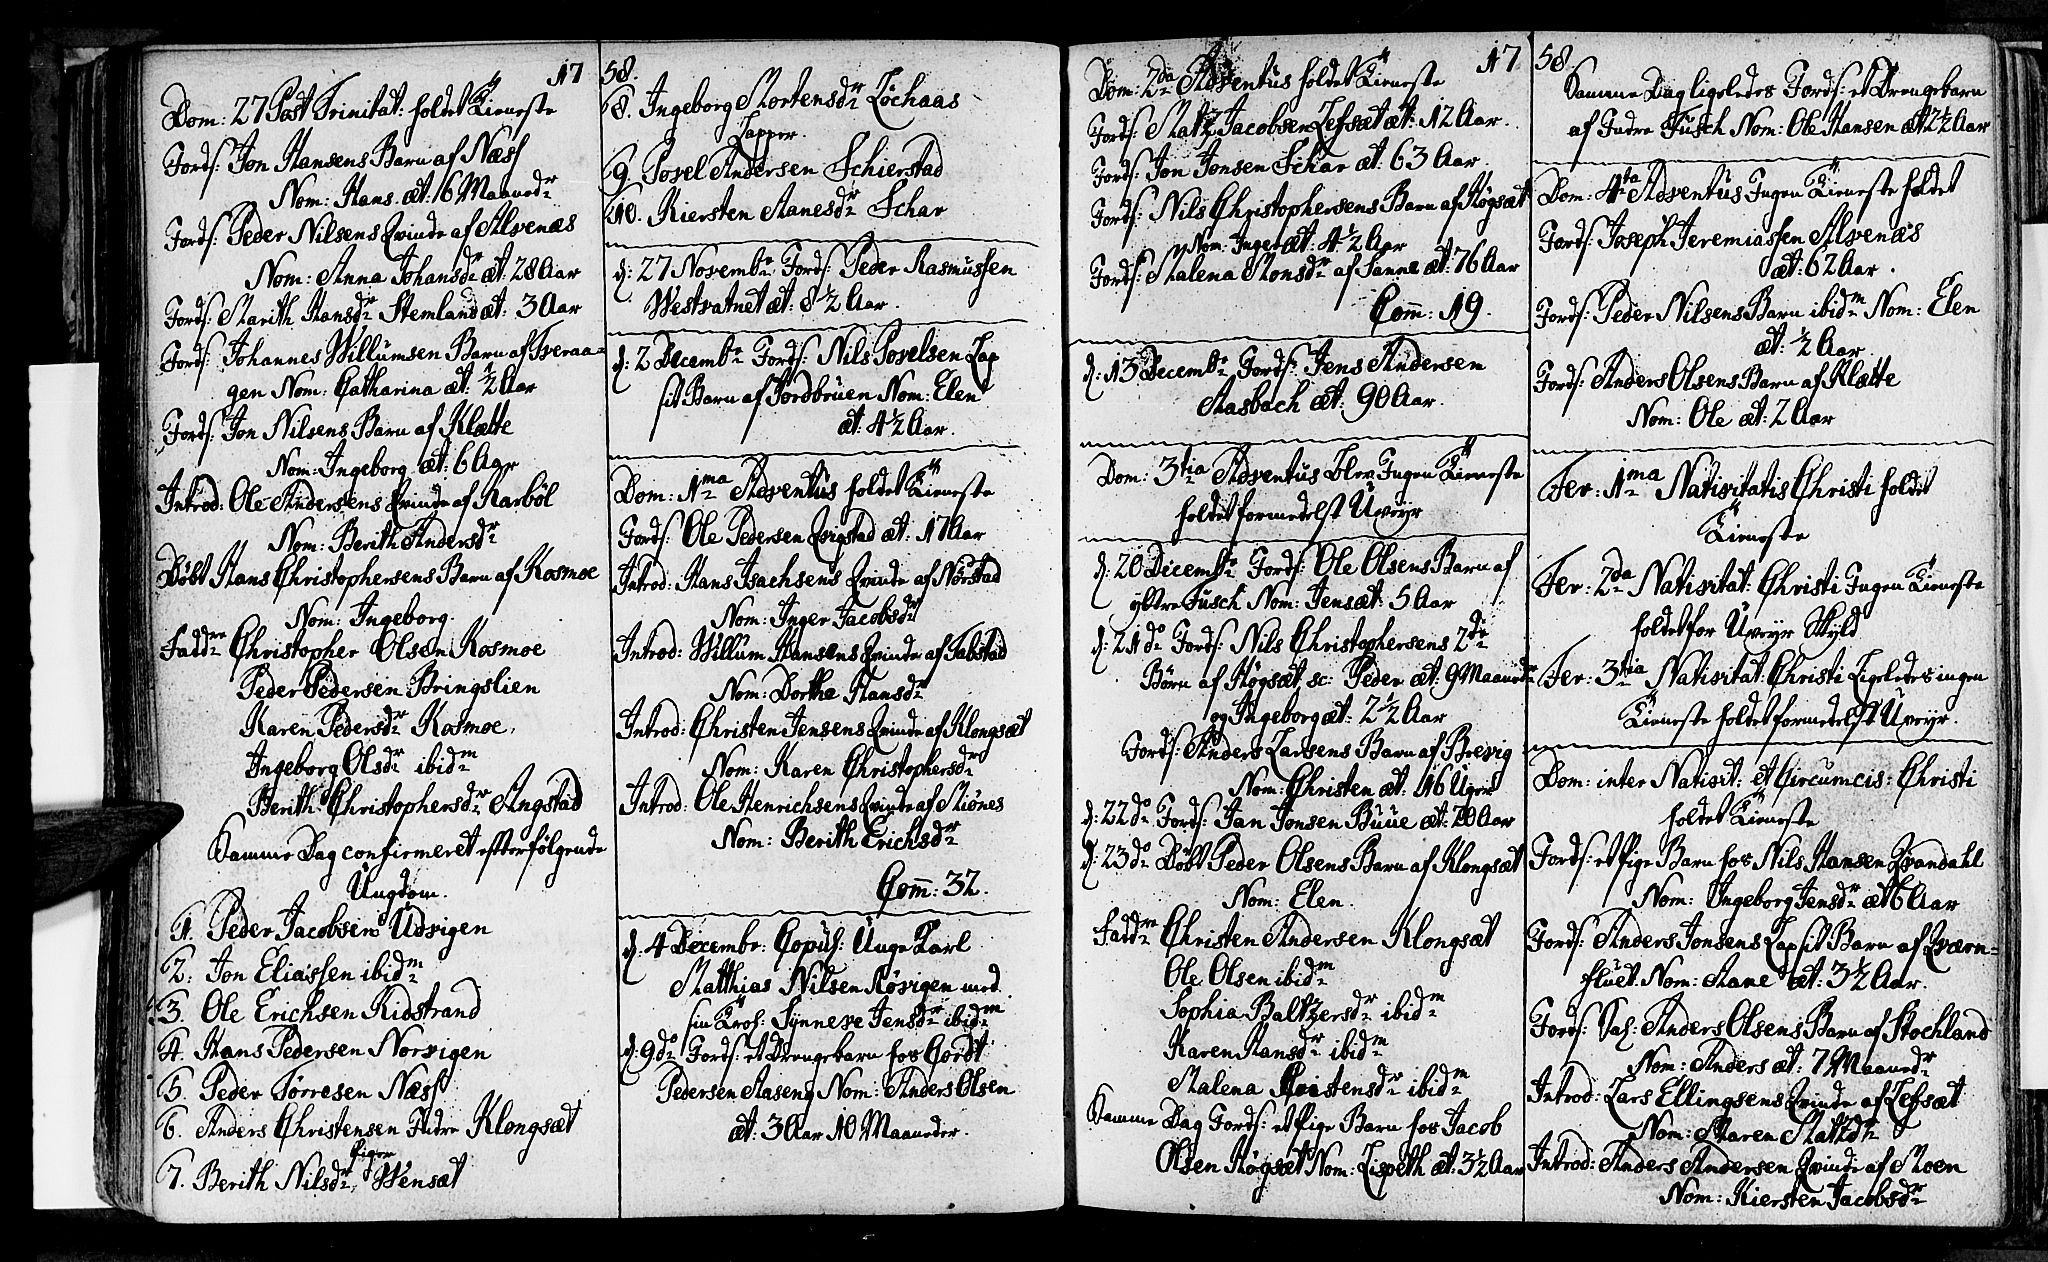 17
Dom: 27 Post Trinitat: holdet Tieneste
Jords: Jon Hansens Barn af Næss
Nom: Hans æt: 6 Maanedr
Jords: Peder Nilsens Qvinde af Alvenæs
Nom: Anna Johansdr æt: 28 Aar
Jords: Marith Hansdr Stemland æt: 3 Aar
Jords: Johannes Willumsen Barn af Tveraa=
gen Nom: Catharina æt: 1/2 Aar
Jords: Jon Nilsens Barn af Klætte
Nom: Ingeborg æt: 6 Aar
Introd: Ole Andersens Qvinde af Karbøl
Nom: Berith Andersdr
Døbt Hans Christophersens Barn af Kosmoe
Nom: Ingeborg.
Faddre Christopher Olsen Kosmoe
Peder Pedersen Bringslien
Karen Pedersdr Kosmoe,
Ingeborg Olsdr ibidm
Berith Christophersdr Angstad
Samme Dag confirmeret efterfølgende
Ungdom.
1. Peder Jacobsen Udvigen
2. Jon Eliassen ibidm
3. Ole Erichsen Kidstrand
4. Hans Pedersen Norvigen
5. Peder Tørresen Næss
6. Anders Christensen Indre Klongsæt
Piger
7. Berith Nilsdr, Wensæt
58.
8. Ingeborg Mortensdr Lochaas
Lapper.
9. Povel Andersen Schierstad
10. Kiersten Aanesdr Schar
d: 27 Novembr Jords: Peder Rasmussen
Westvatnet æt: 8 1/2 Aar.
d: 2 Decembr Jords: Nils Povelsen Lap
sit Barn af Fordbruen Nom: Elen
æt: 4 1/2 Aar.
Dom: 1ma Adventus holdet Tieneste
Jords: Ole Pedersen Qvigstad æt: 17 Aar
Introd: Hans Isachsens Qvinde af Nørstad
Nom: Inger Jacobsdr
Introd: Willum Hansens Qvinde af Tabstad
Nom: Dorthe Hansdr
Introd: Christen Jensens Qvinde af Klongsæt
Nom: Karen Christophersdr
Introd: Ole Henrichsens Qvinde af Miønes
Nom: Berith Erichsdr
Com̄: 32.
d: 4 Decembr: Copul: Unge Karl
Matthias Nilsen Røsvigen med
sin Trol: Synneve Jensdr ibidm
d: 9do Jords: et Drengebarn hos Cordt
Pedersen Aaseng Nom: Anders Olsen
æt: 3 Aar 10 Maaneder.
17
Dom: 2da Adventus holdet Tieneste
Jords: Matz Jacobsen Lefsæt æt: 12 Aar.
Jords: Jon Jonsen Schar æt: 63 Aar.
Jords: Nils Christophersens Barn af Høgsæt
Nom: Inger æt: 4 1/2 Aar
Jords: Malena Monsdr af Sanne æt: 76 Aar
Com̄: 19.
d: 13 Decembr Jords: Jens Andersen
Aasbach æt: 90 Aar.
Dom: 3tia Adventus blev Ingen Tieneste
holdet formedelst Uveyr
d: 20 Decembr Jords: Ole Olsens Barn af
yttre Fusch Nom: Jens æt: 5 Aar
d: 21do Jords: Nils Christophersens 2de
Børn af Høgsæt sc: Peder æt: 9 Maanedr
og Ingeborg æt: 2 1/2 Aar
Jords: Anders Larsens Barn af Brevig
Nom: Christen æt: 16 Uger
d: 22do Jords: Jan Jonsen Buue æt: 70 Aar
d: 23do Døbt Peder Olsens Barn af Klongsæt
Nom: Elen.
Faddre Christen Andersen Klongsæt
Ole Olsen ibidm
Sophia Baltzersdr ibidm
Karen Hansdr ibidm
Malena Christensdr ibidm
Samme Dag Jords: et Pige Barn hos Jacob
Olsen Høgsæt Nom: Lispeth æt: 3 1/2 Aar
58
Samme Dag ligeledes Jords: et Drengebarn
af Indre Fusch Nom: Ole Hansen æt: 2 1/2 Aar
Dom: 4ta Adventus Ingen Tieneste holdet
Jords: Joseph Jeremiassen Alvenæs
æt: 62 Aar.
Jords: Peder Nilsens Barn ibidm Nom: Elen
æt: 1/2 Aar
Jords: Anders Olsens Barn af Klætte
Nom: Ole æt: 2 Aar
Fer: 1ma Nativitatis Christi holdet
Tieneste
Fer: 2da Nativitat: Christi Ingen Tieneste
holdet for Uveyr Skyld
Fer: 3tia Nativitat: Christi Ligeledes ingen
Tieneste holdet formedelst Uveyr.
Dom: inter Nativit: et Circumcis: Christi
holdet Tieneste
Jords: et Pige Barn hos Nils Hansen Qvandahl
Nom: Ingeborg Jensdr æt: 6 Aar
Jords: Anders Jonsens Lap sit Barn af Qværn=
fluet Nom: Aane æt: 3 1/2 Aar.
Jords: Sal: Anders Olsens Barn af Stochland
Nom: Anders æt: 7 Maanedr
Introd: Lars Ellingsens Qvinde af Lefsæt
Nom: Maren Matsdr
Introd: Anders Andersen Qvinde af Moen
Nom: Kiersten Jacobsdr